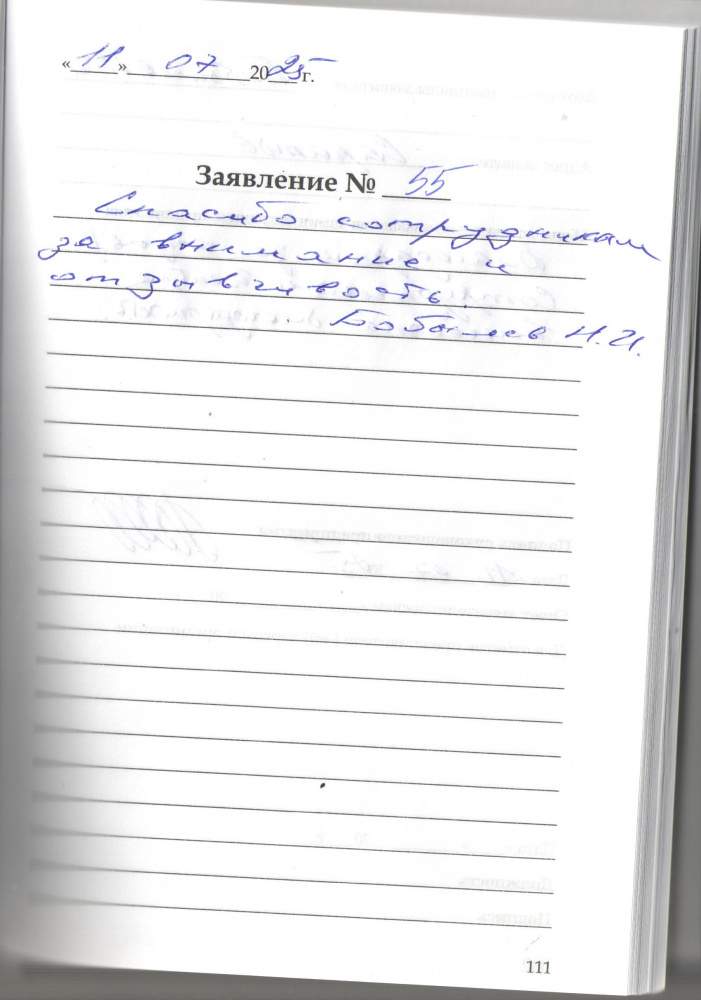 «11» 07 2025 г.
Заявление № 55
Спасибо сотрудникам
за внимание и
отзывчивость.
Бобылев Н.И.
111